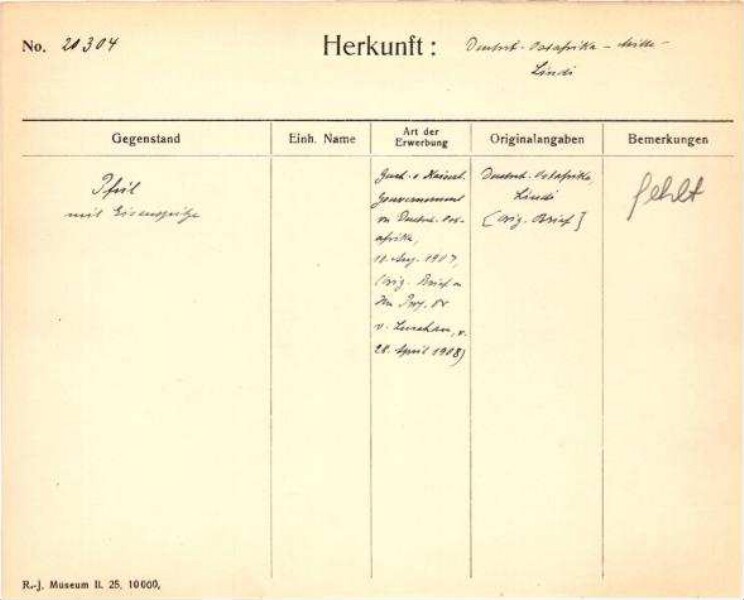 No. 20304
Herkunft: Deutsch-Ostafrika -
Lindi
Gegenstand
Einh. Name
Art der
Erwerbung
Originalangaben
Bemerkungen
Pfeil
mit Eisenspitze
v. Kaiserl.
Gouvernement
von Deutsch-Ost-
afrika,
Aug. 1907,
(orig. Brief
Prof. Dr
v. Luschan, v.
28. April 1908)
Deutsch-Ostafrika,
Lindi
[orig. Brief]
fehlt
R.-J. Museum II. 25, 10000,